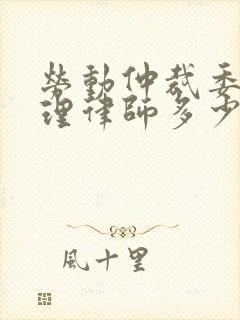 勞動仲裁委
理律師多少
風十里